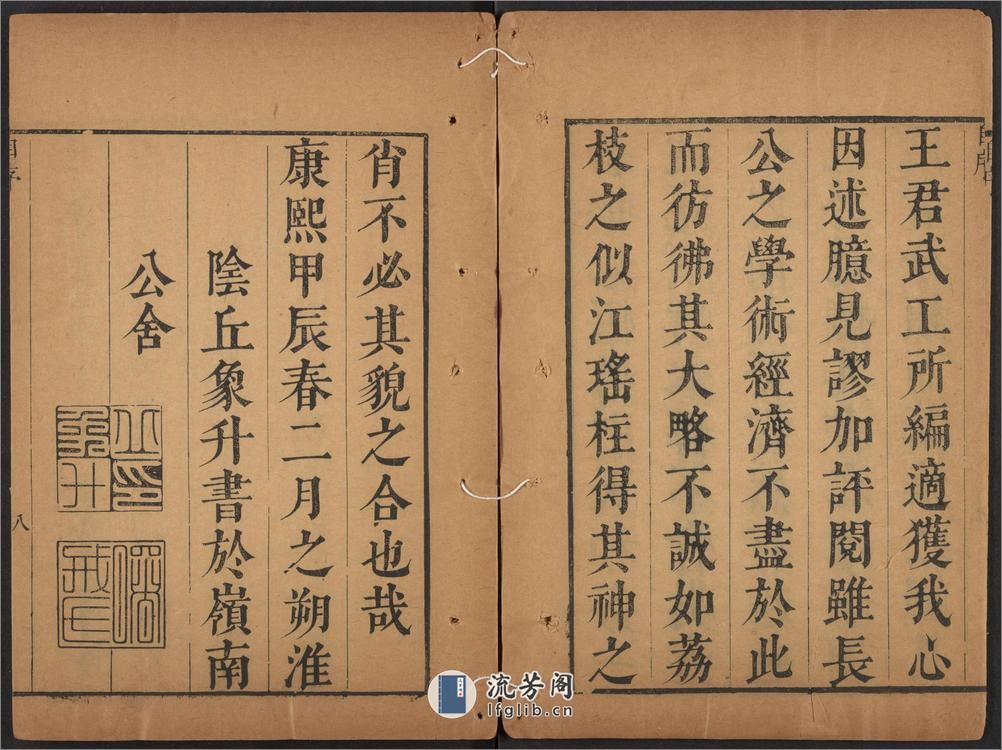 王君武工所編適獲我心
因述臆見謬加評閱雖長
公之學術經濟不盡於此
而彷彿其大略不誠如荔
枝之似江瑤柱得其神之
肖不必其貌之合也哉
康熙甲辰春二月之朔淮
陰丘象升書於嶺南
公舍
八
流芳阁
lfglib.cn